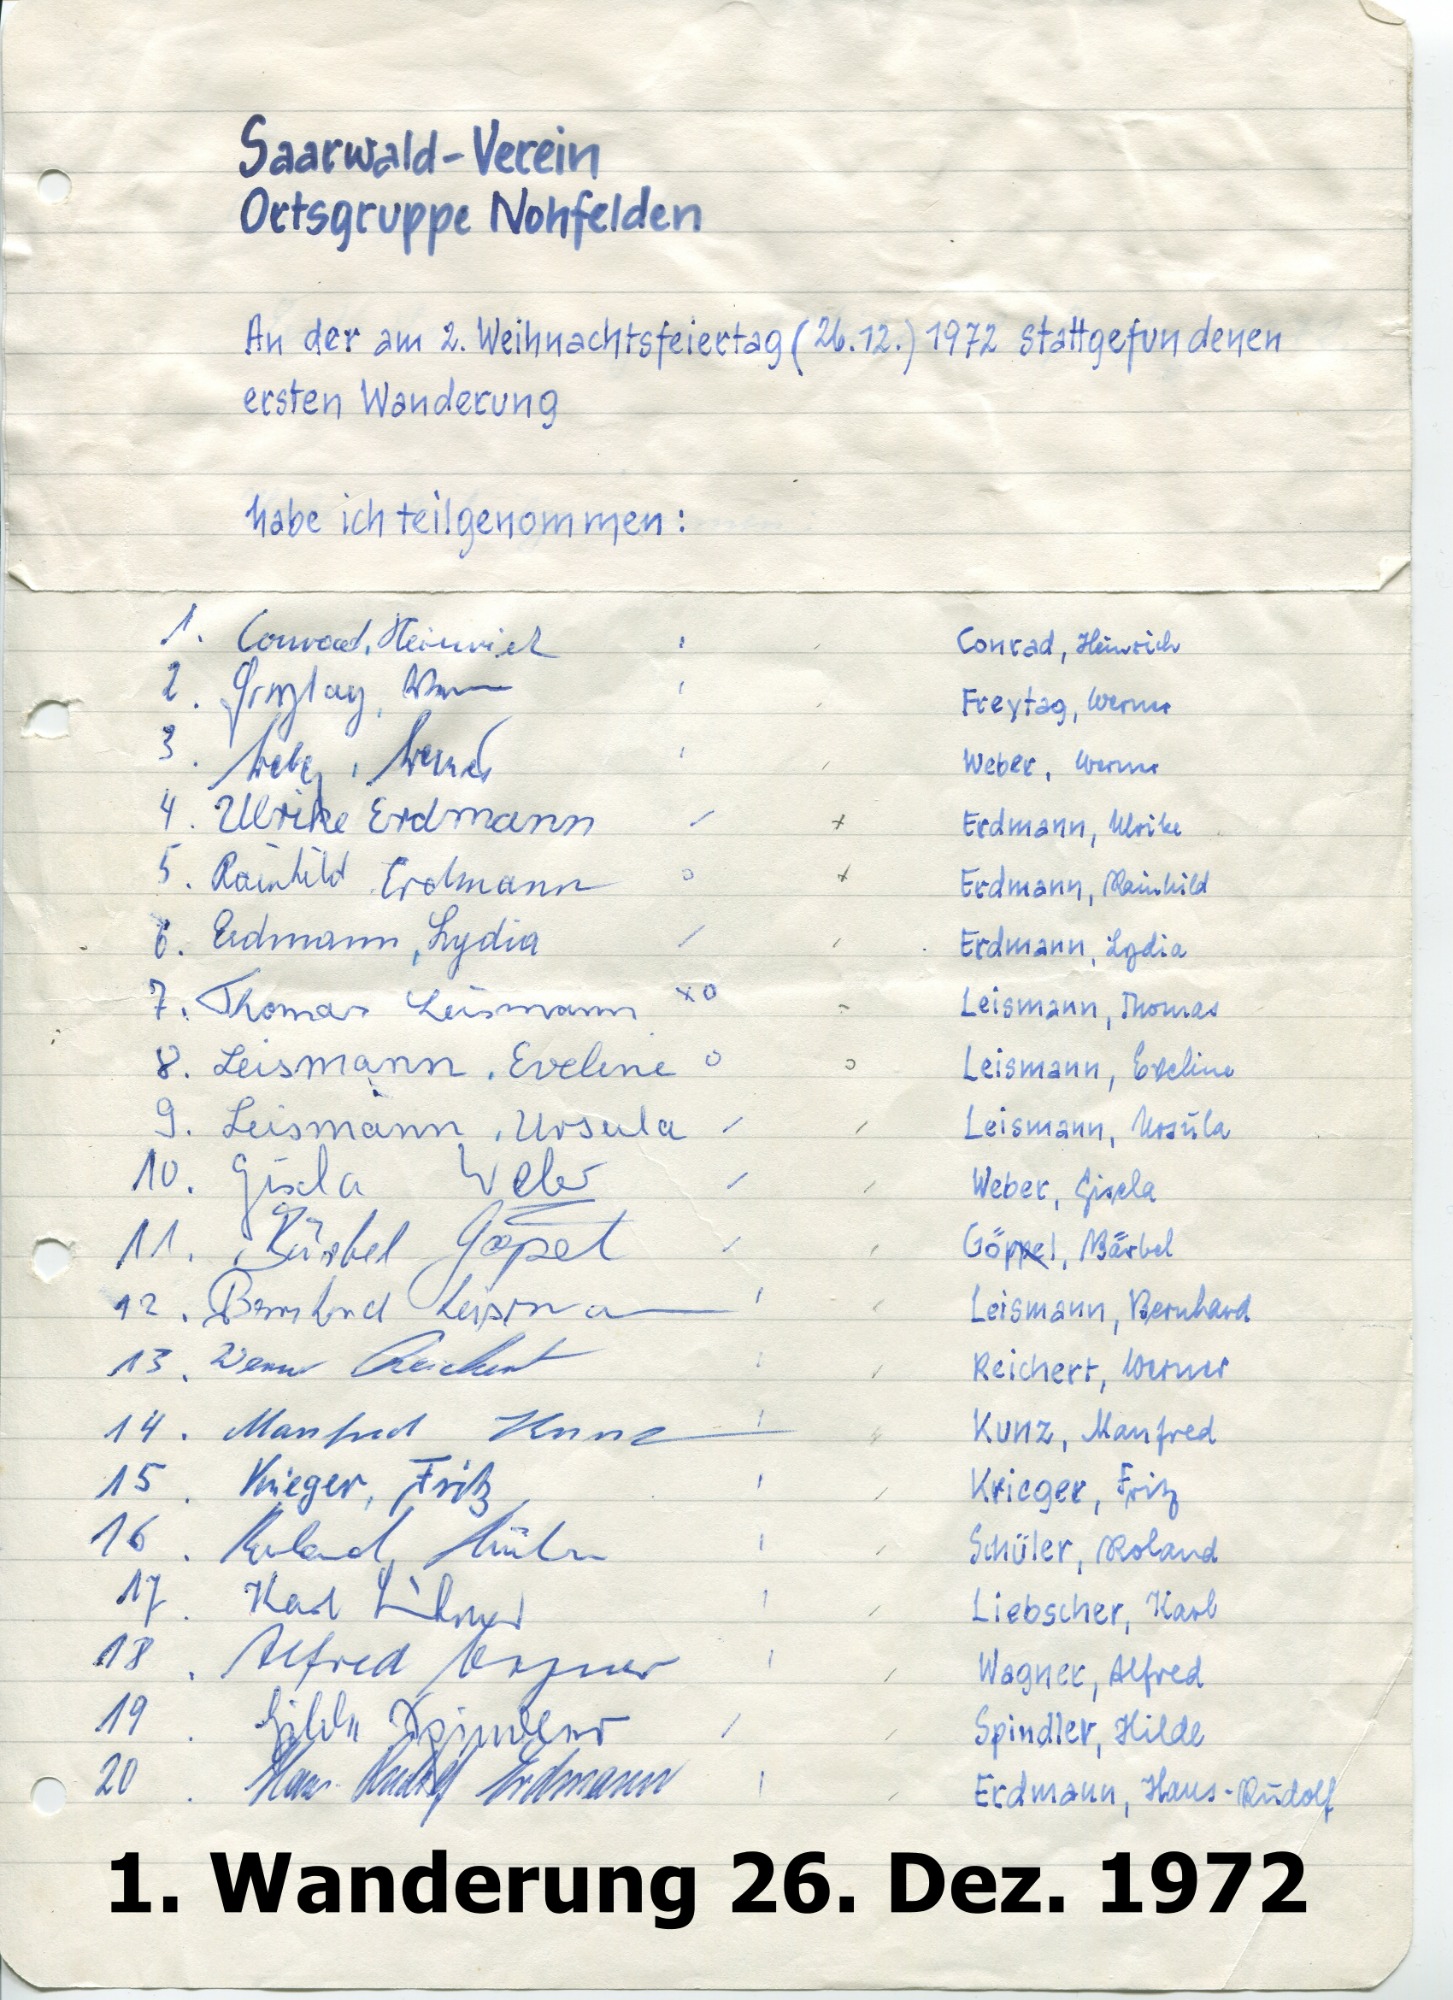 Saarwald-Verein
Ortsgruppe Nohfelden
An der am 2. Weihnachtsfeiertag (26.12.) 1972 stattgefundenen
ersten Wanderung
habe ich teilgenommen:
1. Conrad, Heinrich Conrad, Heinrich
2. Freytag, Werner Freytag, Werner
3. Weber, Werner Weber, Werner
4. Ulrike Erdmann / + Erdmann, Ulrike
5. Rainhild Erdmann o + Erdmann, Rainhild
6. Erdmann, Lydia / / Erdmann, Lydia
7. Thomas Leismann xo - Leismann, Thomas
8. Leismann, Eveline o o Leismann, Eveline
9. Leismann, Ursula / / Leismann, Ursula
10. Gisela Weber / / Weber, Gisela
11. Bärbel Göpel / / Göppel, Bärbel
12. Bernhard Leismann Leismann, Bernhard
13. Werner Reichert Reichert, Werner
14. Manfred Kunz Kunz, Manfred
15. Krieger, Fritz Krieger, Fritz
16. Roland Schüler Schüler, Roland
17. Karl Liebscher, Karl
18. Alfred Wagner Wagner, Alfred
19. Hilde Spindler Spindler, Hilde
20 Hans-Rudolf Erdmann Erdmann, Hans-Rudolf
1. Wanderung 26. Dez. 1972